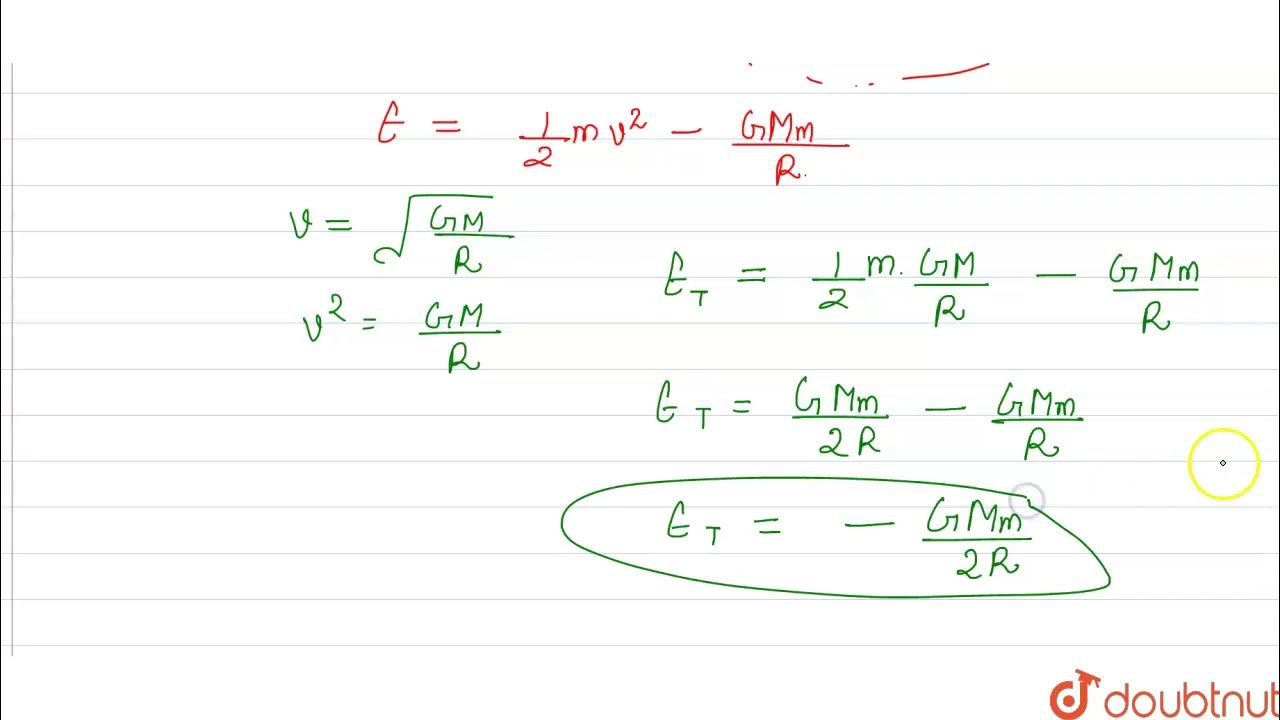 E = 1/2 m v² − GMm/R.
v = √(GM/R)
E_T = 1/2 m. GM/R − GMm/R
v² = GM/R
E_T = GMm/2R − GMm/R
E_T = − GMm/2R
doubtnut